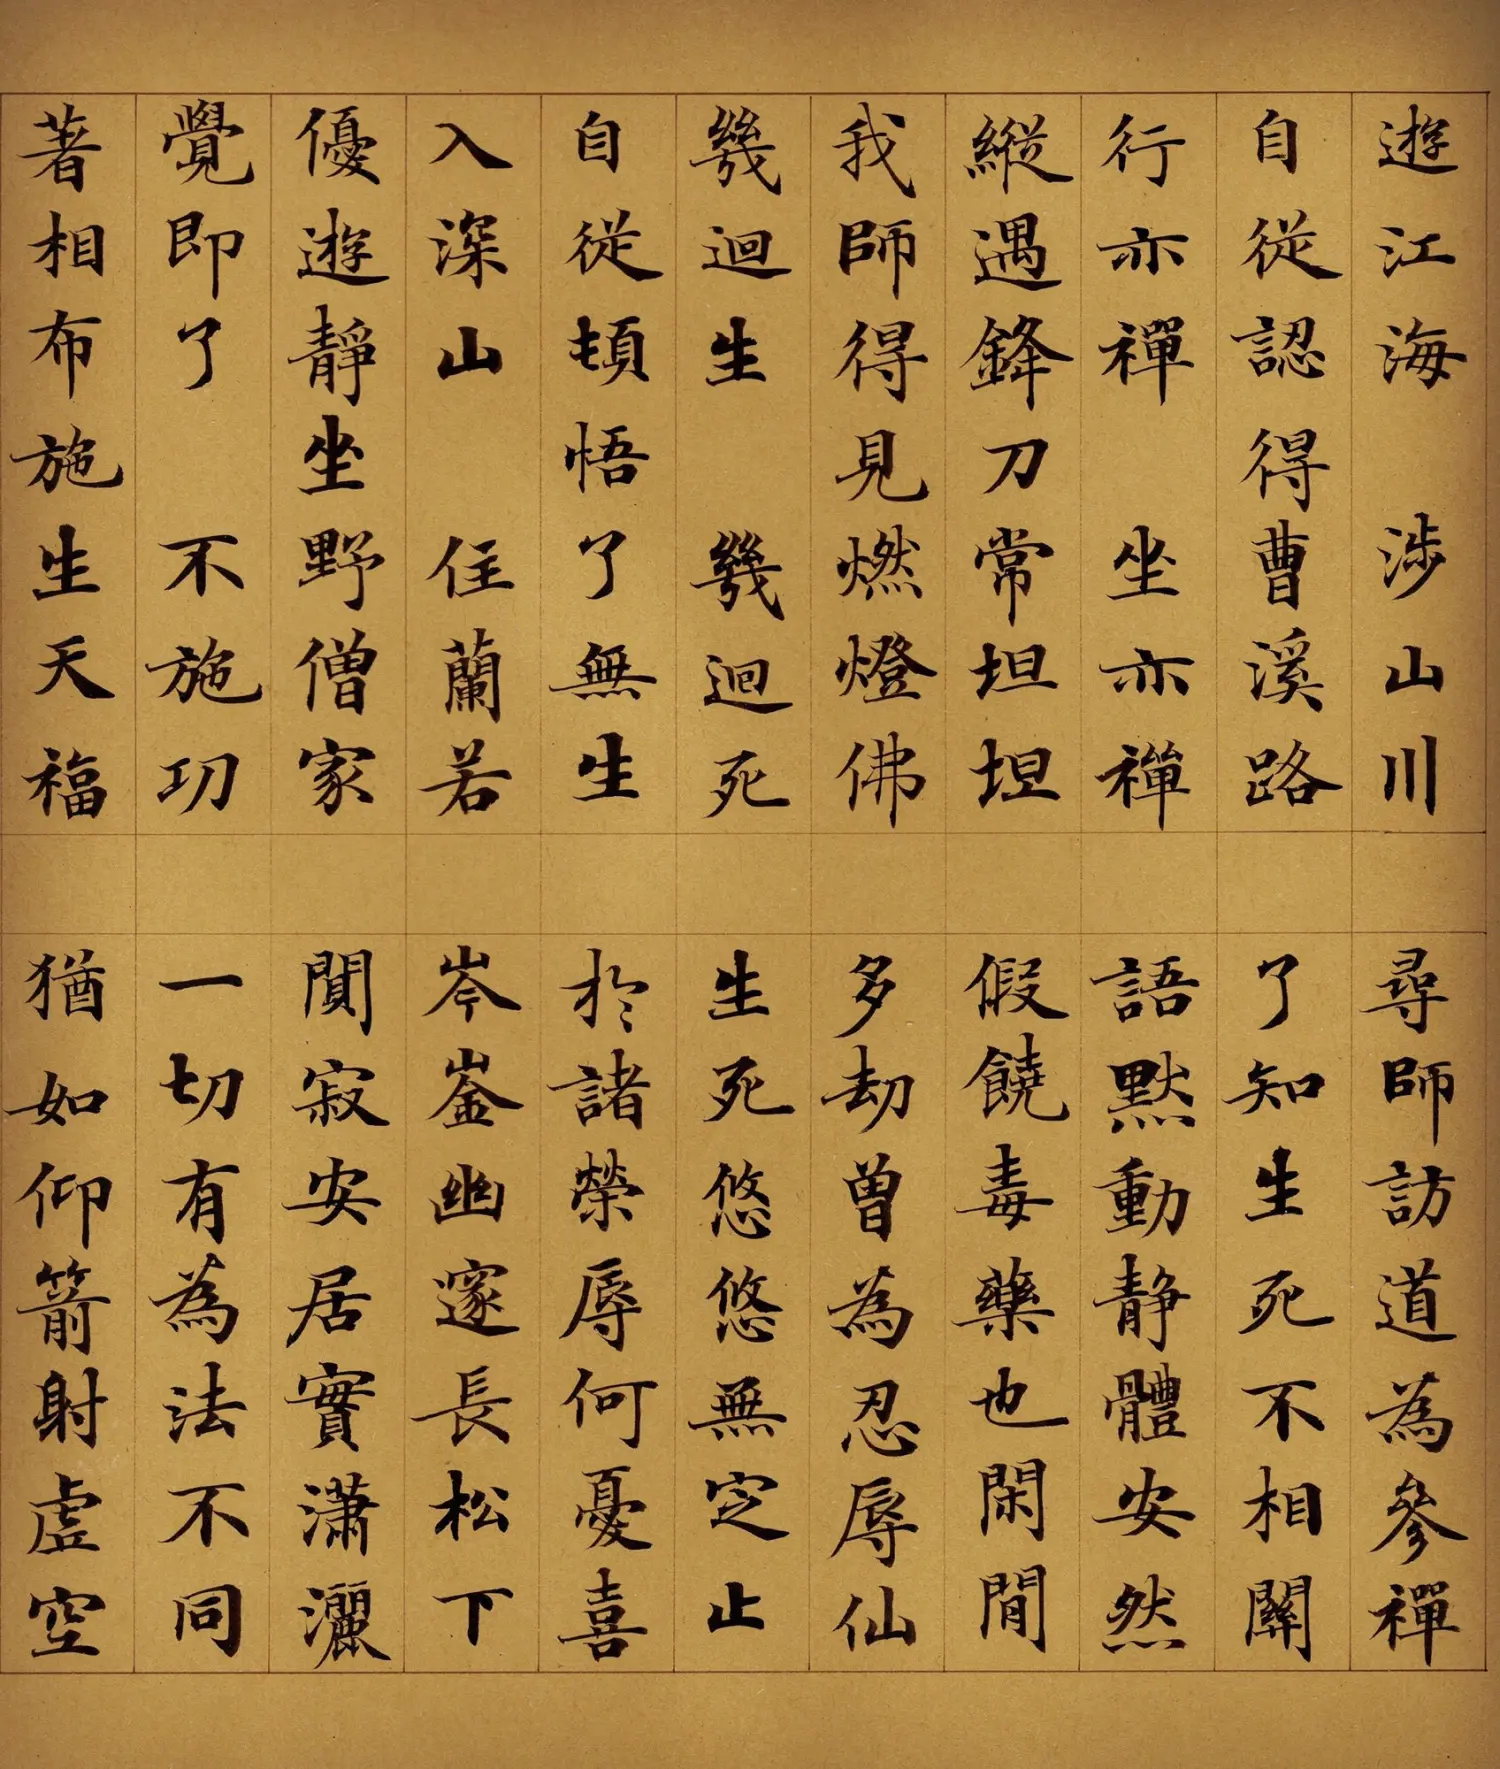 遊江海　涉山川
尋師訪道為參禪
自從認得曹溪路
了知生死不相關
行亦禪　坐亦禪
語默動靜體安然
縱遇鋒刀常坦坦
假饒毒藥也閑閒
我師得見燃燈佛
多劫曾為忍辱仙
幾迴生　幾迴死
生死悠悠無定止
自從頓悟了無生
於諸榮辱何憂喜
入深山　住蘭若
岑崟幽邃長松下
優遊靜坐野僧家
闃寂安居實瀟灑
覺即了　不施功
一切有為法不同
著相布施生天福
猶如仰箭射虛空